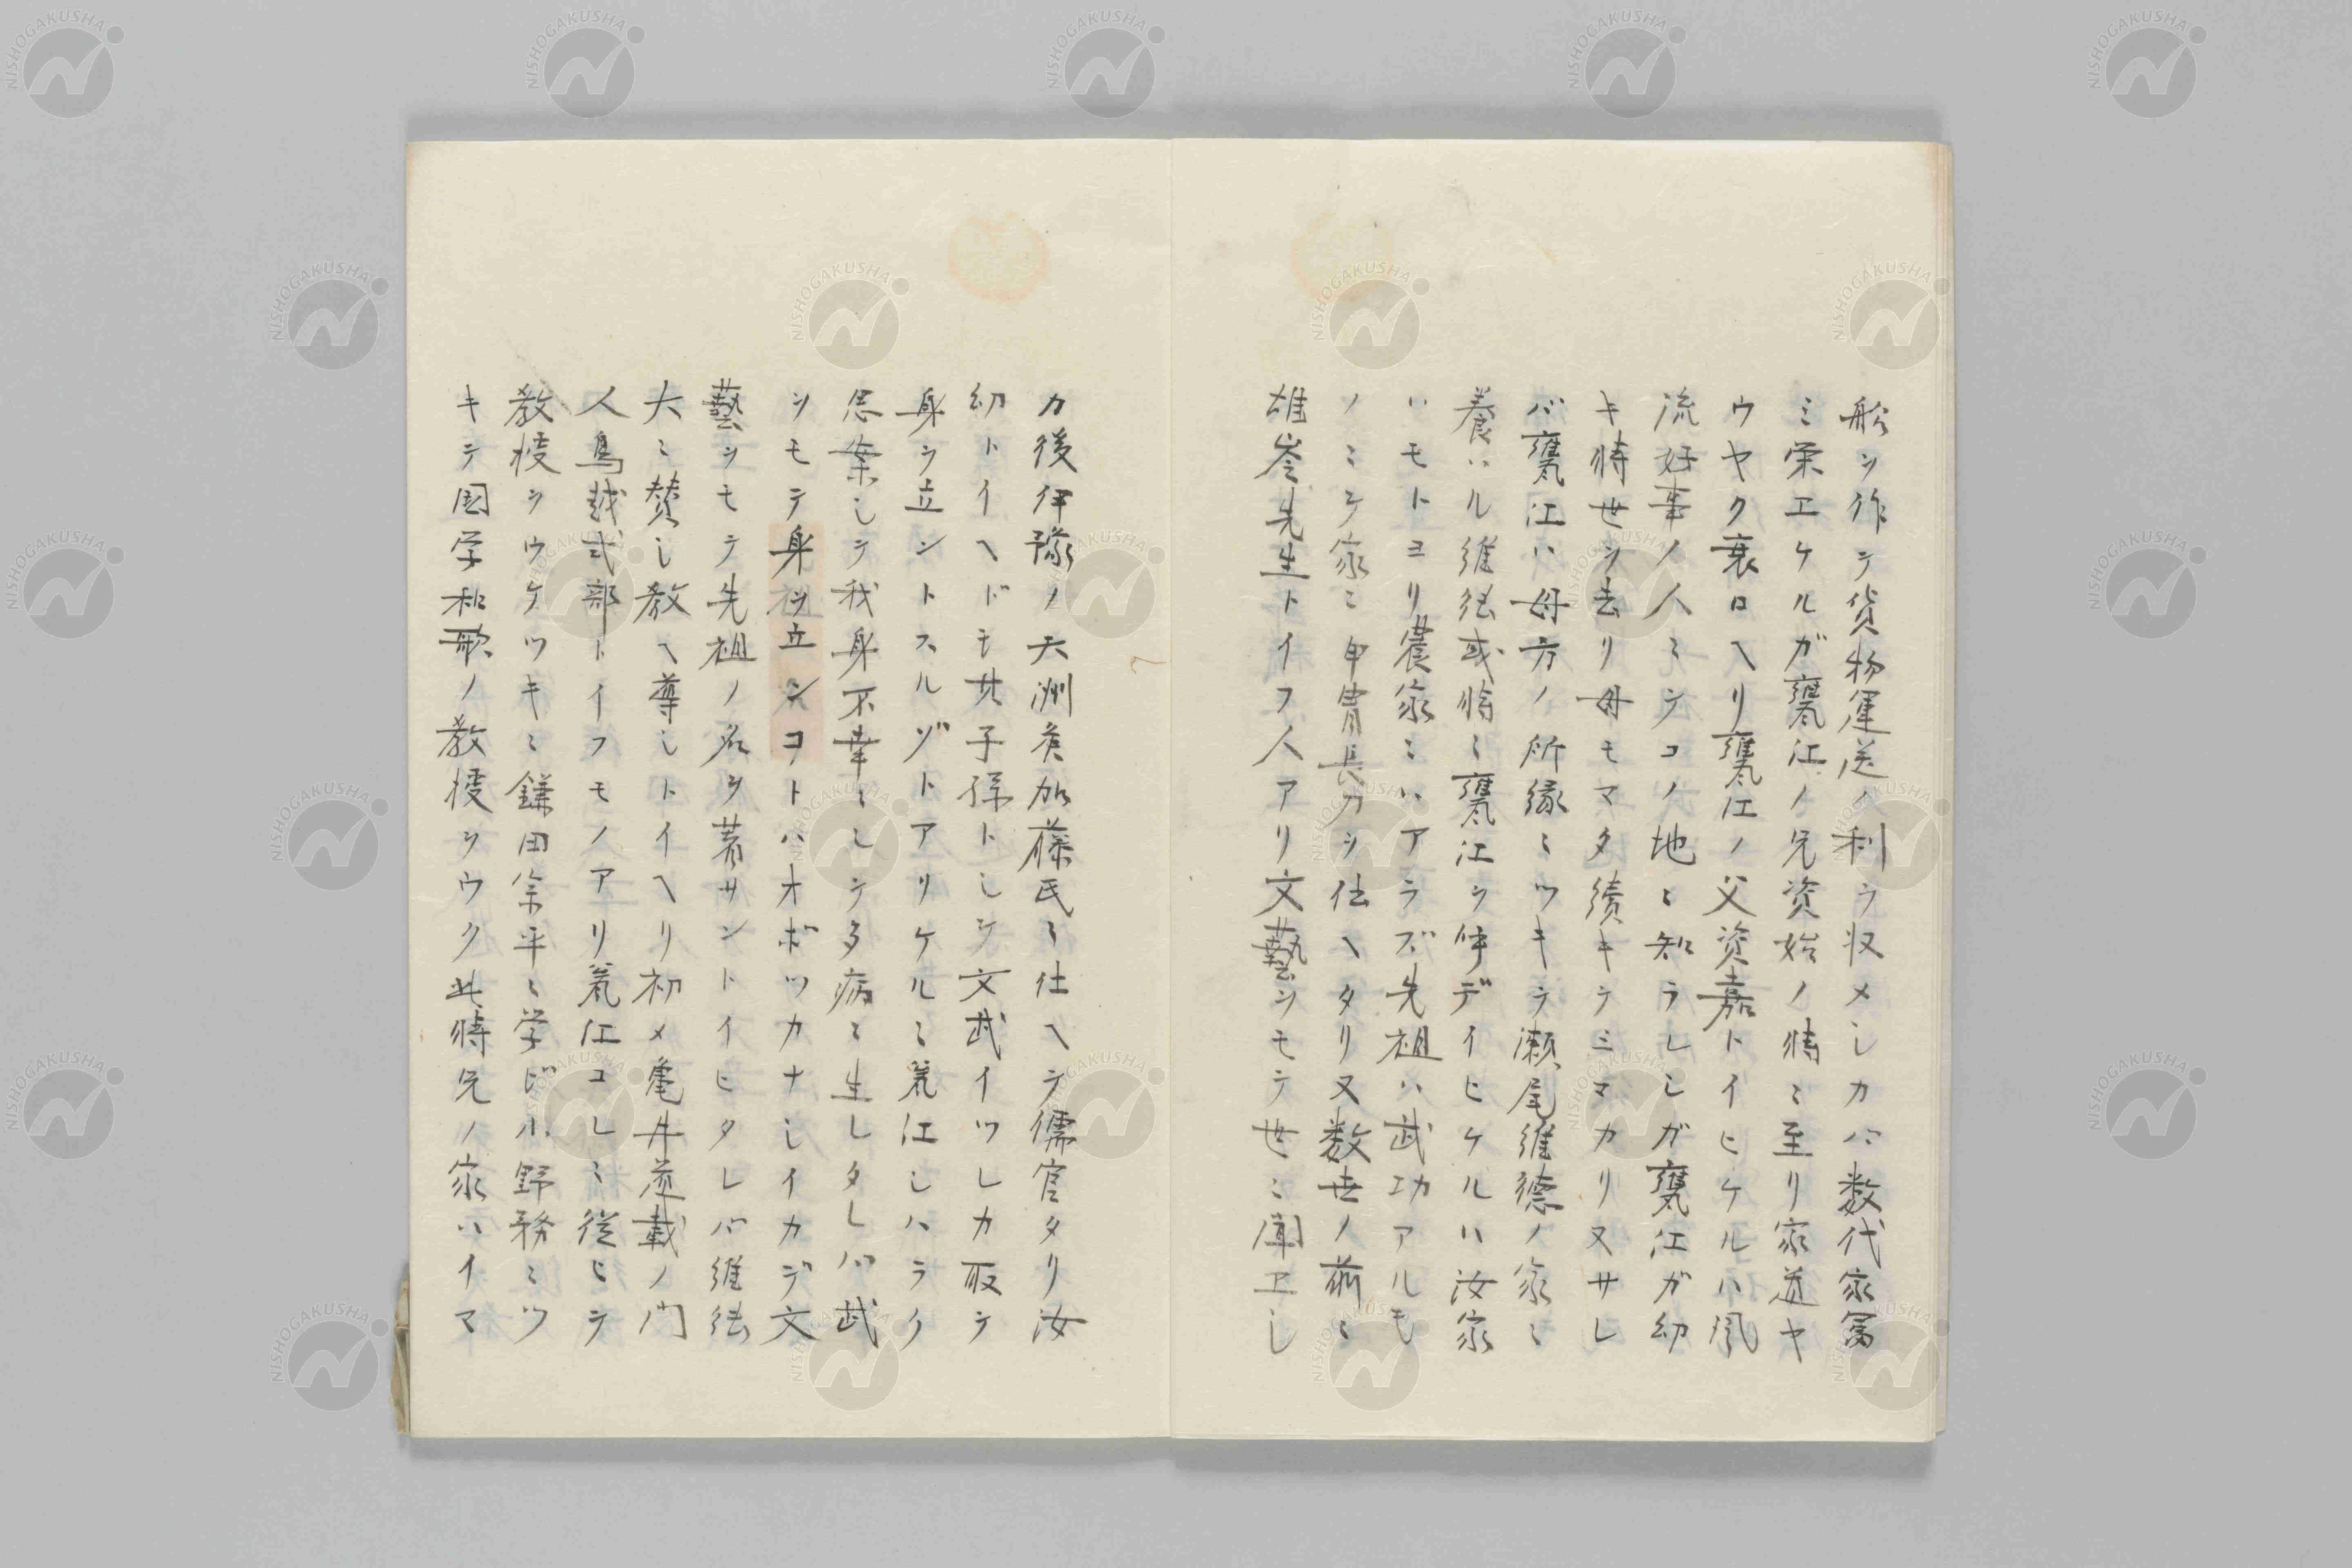 船ヲ作テ貨物運送ノ利ヲ収メシカバ数代家富
ミ栄エケルガ甕江ノ兄資始ノ時ニ至リ家道ヤ
ウヤク衰ロヘリ甕江ノ父資嘉トイヒケルハ風
流好事ノ人ニシテコノ地ニ知ラレシガ甕江ガ幼
キ時世ヲ去リ母モマタ續キテミマカリヌサレ
バ甕江ハ母方ノ所縁ニツキテ瀬尾維德ノ家ニ
養ハル維德或時ニ甕江ヲ呼デイヒケルハ汝家
ハモトヨリ農家ニハアラズ先祖ハ武功アルモ
ノニシテ家ニ甲冑長刀ヲ伝ヘタリ又数世ノ前ニ
雄岑先生トイフ人アリ文藝ヲモテ世ニ聞エシ
カ後伊豫ノ大洲矦加藤氏ニ仕ヘテ儒官タリ汝
幼トイヘドモ其子孫トシテ文武イヅレカ取テ
身ヲ立ントスルゾトアリケルニ甕江シハラク
思案シテ我身不幸ニシテ多病ニ生レタレバ武
ヲモテ身ヲ立ンコトハオボツカナシイカデ文
藝ヲモテ先祖ノ名ヲ著サントイヒタレバ維德
大ニ賛シ教ヘ導シトイヘリ初メ亀井道載ノ門
人鳥越式部トイフモノアリ甕江コレニ従ヒテ
教授ヲウケツキニ鎌田余平ニ学ビ小野務ニツ
キテ国学和歌ノ教授ヲウク此時兄ノ家ハイマ
NISHOGAKUSHA